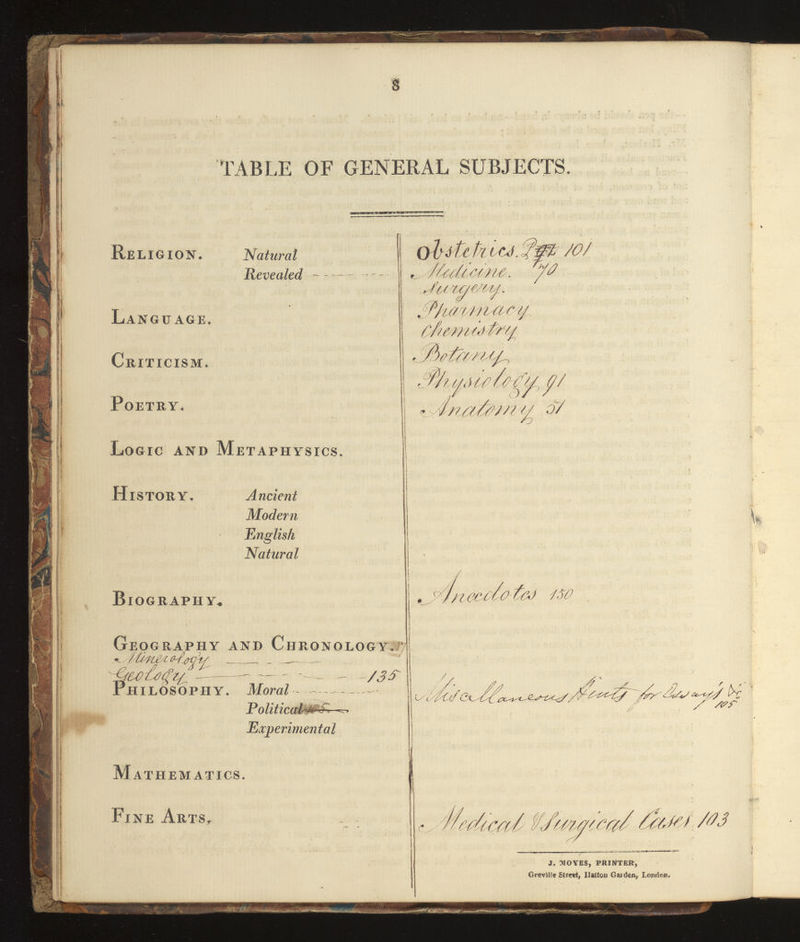 8
TABLE OF GENERAL SUBJECTS.
RELIGION. Natural
Revealed
LANGUAGE.
CRITICISM.
POETRY.
LOGIC AND METAPHYSICS.
HISTORY. Ancient
Modern
English
Natural
BIOGRAPHY.
GEOGRAPHY AND CHRONOLOGY.
Minerology
Geology 135
PHILOSOPHY. Moral
Political
Experimental
MATHEMATICS.
FINE ARTS.
Obstetrics. 101
Medicine. 70
Surgery.
Pharmacy
Chemistry
Botany
Physiology 91
Anatomy 51
Anecdotes 150
Miscellaneous Hints for Essay's &c
105
Medical & Surgical Cases 103
J. MOYES, PRINTER,
Greville Street, Hatton Garden, London.